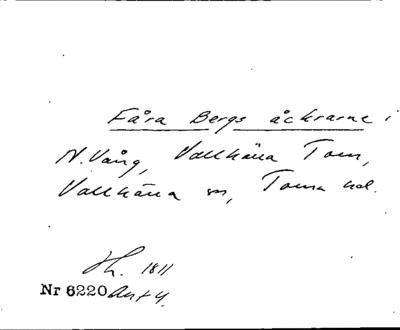 Fåra Bergs åckrarne i
N. Vång, Vallkärra Torn,
Vallkärra sn, Torna hd.
Sk. 1811
Nr 6220 Akt 4.